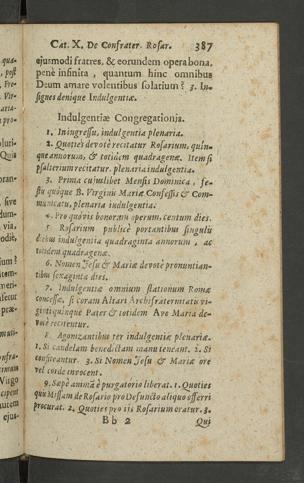 Cat. X. De Confrater. Rosar. 387
ejusmodi fratres, & eorundem opera bona,
penè infinita, quantum hinc omnibus
Deum amare volentibus solatium? 3. In-
signes denique Indulgentiæ.
Indulgentiæ Congregationis.
1. In ingressu, indulgentia plenaria.
2. Quoties devotè recitatur Rosarium, quin-
que annorum, & totidem quadragenæ. Item si
psalterium recitatur, plenaria indulgentia.
3. Prima cujuslibet Mensis Dominica, fe-
sto quoque B. Virginis Mariæ Confessis & Com-
municatis, plenaria indulgentia.
4. Pro quovis bonorum operum, centum dies.
5. Rosarium publicè portantibus singulis
diebus indulgentia quadraginta annorum, ac
totidem quadragenæ.
6. Nomen Jesu & Mariæ devotè pronuntian-
tibus sexaginta dies.
7. Indulgentiæ omnium stationum Romæ
concessæ, si coram Altari Archifraternitatis vi-
ginti quinque Pater & totidem Ave Maria de-
votè recitentur.
8. Agonizantibus ter indulgentiæ plenariæ.
1. Si candelam benedictam manu teneant. 2. Si
confiteantur. 3. Si Nomen Jesu & Mariæ ore
vel corde invocent.
9. Sæpè animā è purgatorio liberat. 1. Quoties
quis Missam de Rosario pro Defuncto aliquo offerri
procurat. 2. Quoties pro iis Rosarium oratur. 3.
Bb 2 Qui